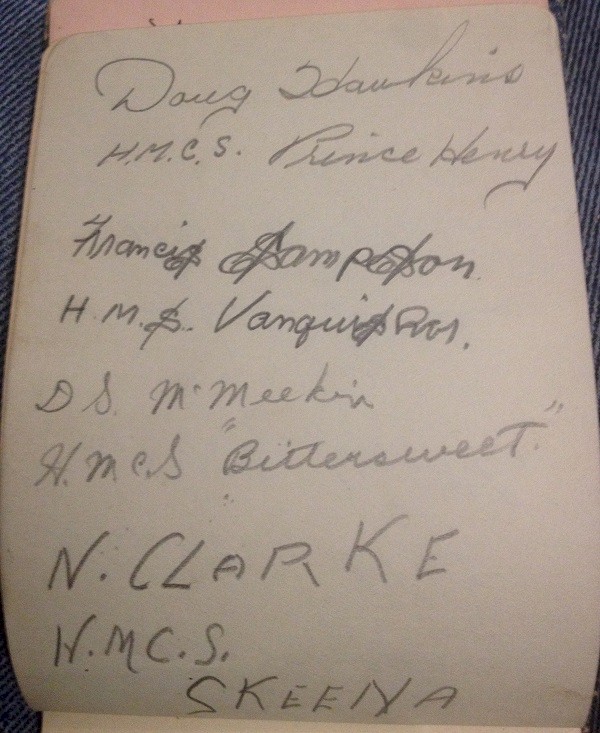 Doug Hawkins
H.M.C.S. Prince Henry
Francis Sampson
H.M.S. Vanquisher.
D S. McMeekin
H.M.C.S "Bittersweet."
N. CLARKE
H.M.C.S.
SKEENA